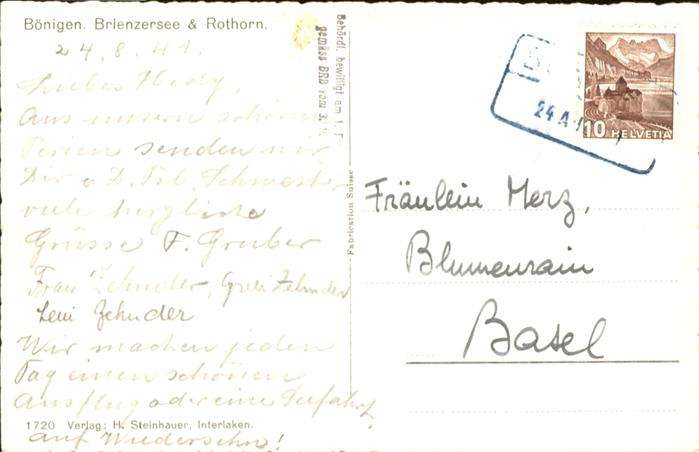 Bönigen. Brienzersee & Rothorn.
24.8.41.
Liebes Hedy,
Aus unsern schönen
Ferien senden wir
Dir u D. Frl. Schwester
viele herzliche
Grüsse F. Gruber
Frau Zehnder, Greti Zehnder
Leni Zehnder
Wir machen jeden
Tag einen schönen
Ausflug oder eine Seefahrt,
1720 Verlag: H. Steinhauer, Interlaken.
auf Wiedersehn!
Behördl. bewilligt am
gemäss BRB vom 3.
Fabrication Suisse
24 A
10 HELVETIA
Fräulein Merz,
Blumenrain
Basel